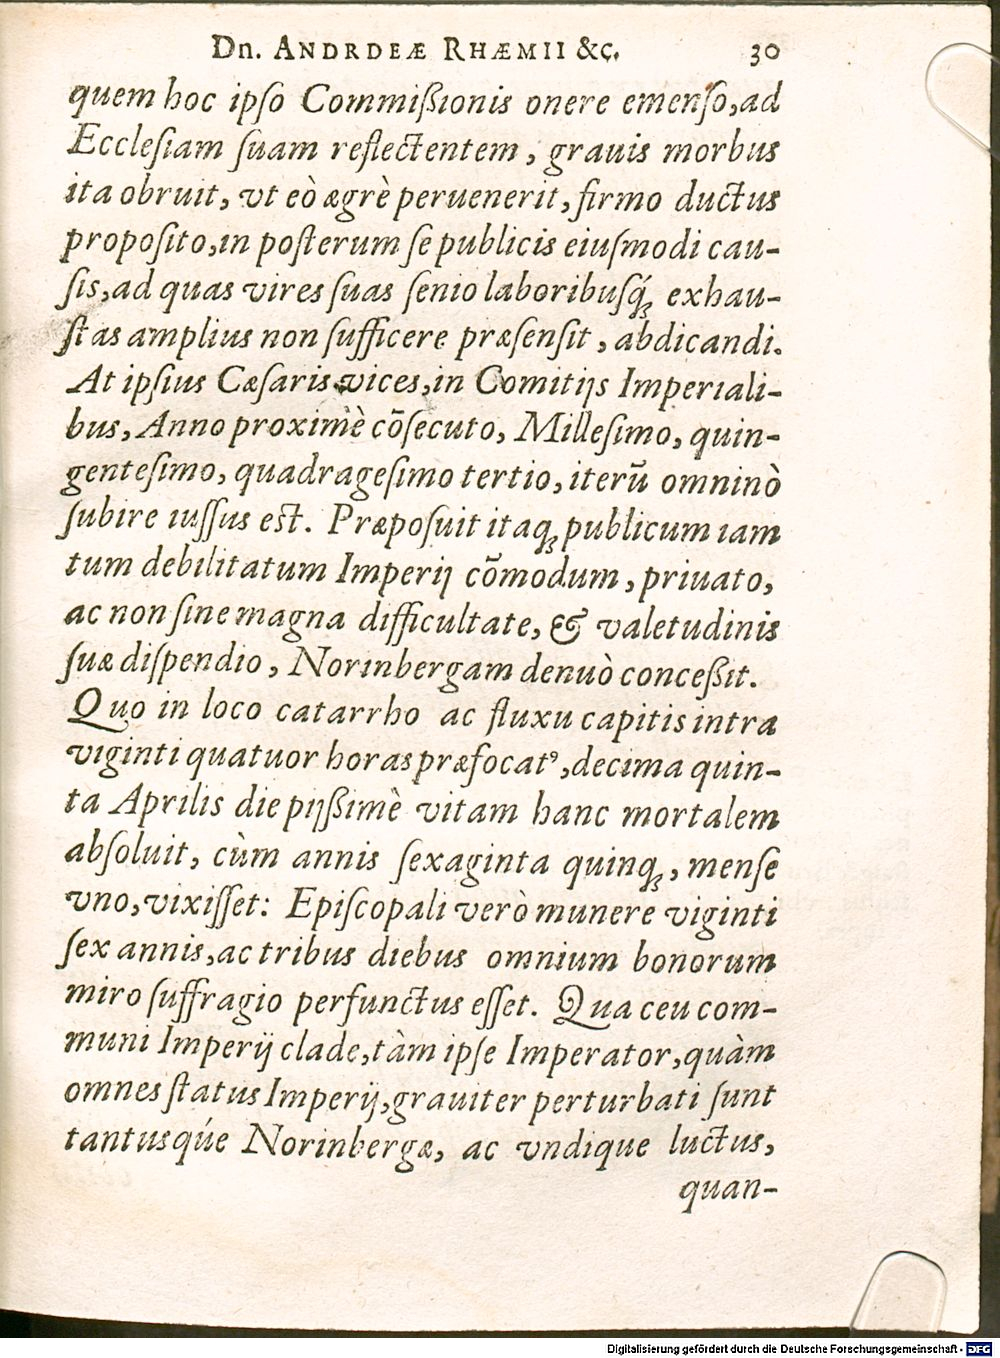 Dn. ANDRDEÆ RHÆMII &c. 30
quem hoc ipſo Commißionis onere emenſo, ad
Eccleſiam ſuam reflectentem, grauis morbus
ita obruit, vt eò ægrè peruenerit, firmo ductus
propoſito, in poſterum ſe publicis eiuſmodi cau-
ſis, ad quas vires ſuas ſenio laboribuſq́; exhau-
ſtas amplius non ſufficere præſenſit, abdicandi.
At ipſius Cæſaris vices, in Comitijs Imperiali-
bus, Anno proximè cõſecuto, Milleſimo, quin-
genteſimo, quadrageſimo tertio, iterũ omninò
ſubire iuſſus eſt. Præpoſuit itaq; publicum iam
tum debilitatum Imperij cõmodum, priuato,
ac non ſine magna difficultate, & valetudinis
ſuæ diſpendio, Norinbergam denuò conceßit.
Quo in loco catarrho ac fluxu capitis intra
viginti quatuor horas præfocatꝰ, decima quin-
ta Aprilis die pijßimè vitam hanc mortalem
abſoluit, cùm annis ſexaginta quinq;, menſe
vno, vixiſſet: Epiſcopali verò munere viginti
ſex annis, ac tribus diebus omnium bonorum
miro ſuffragio perfunctus eſſet. Qua ceu com-
muni Imperij clade, tàm ipſe Imperator, quàm
omnes ſtatus Imperij, grauiter perturbati ſunt
tantusqúe Norinbergæ, ac vndique luctus,
quan-
Digitalisierung gefördert durch die Deutsche Forschungsgemeinschaft - DFG